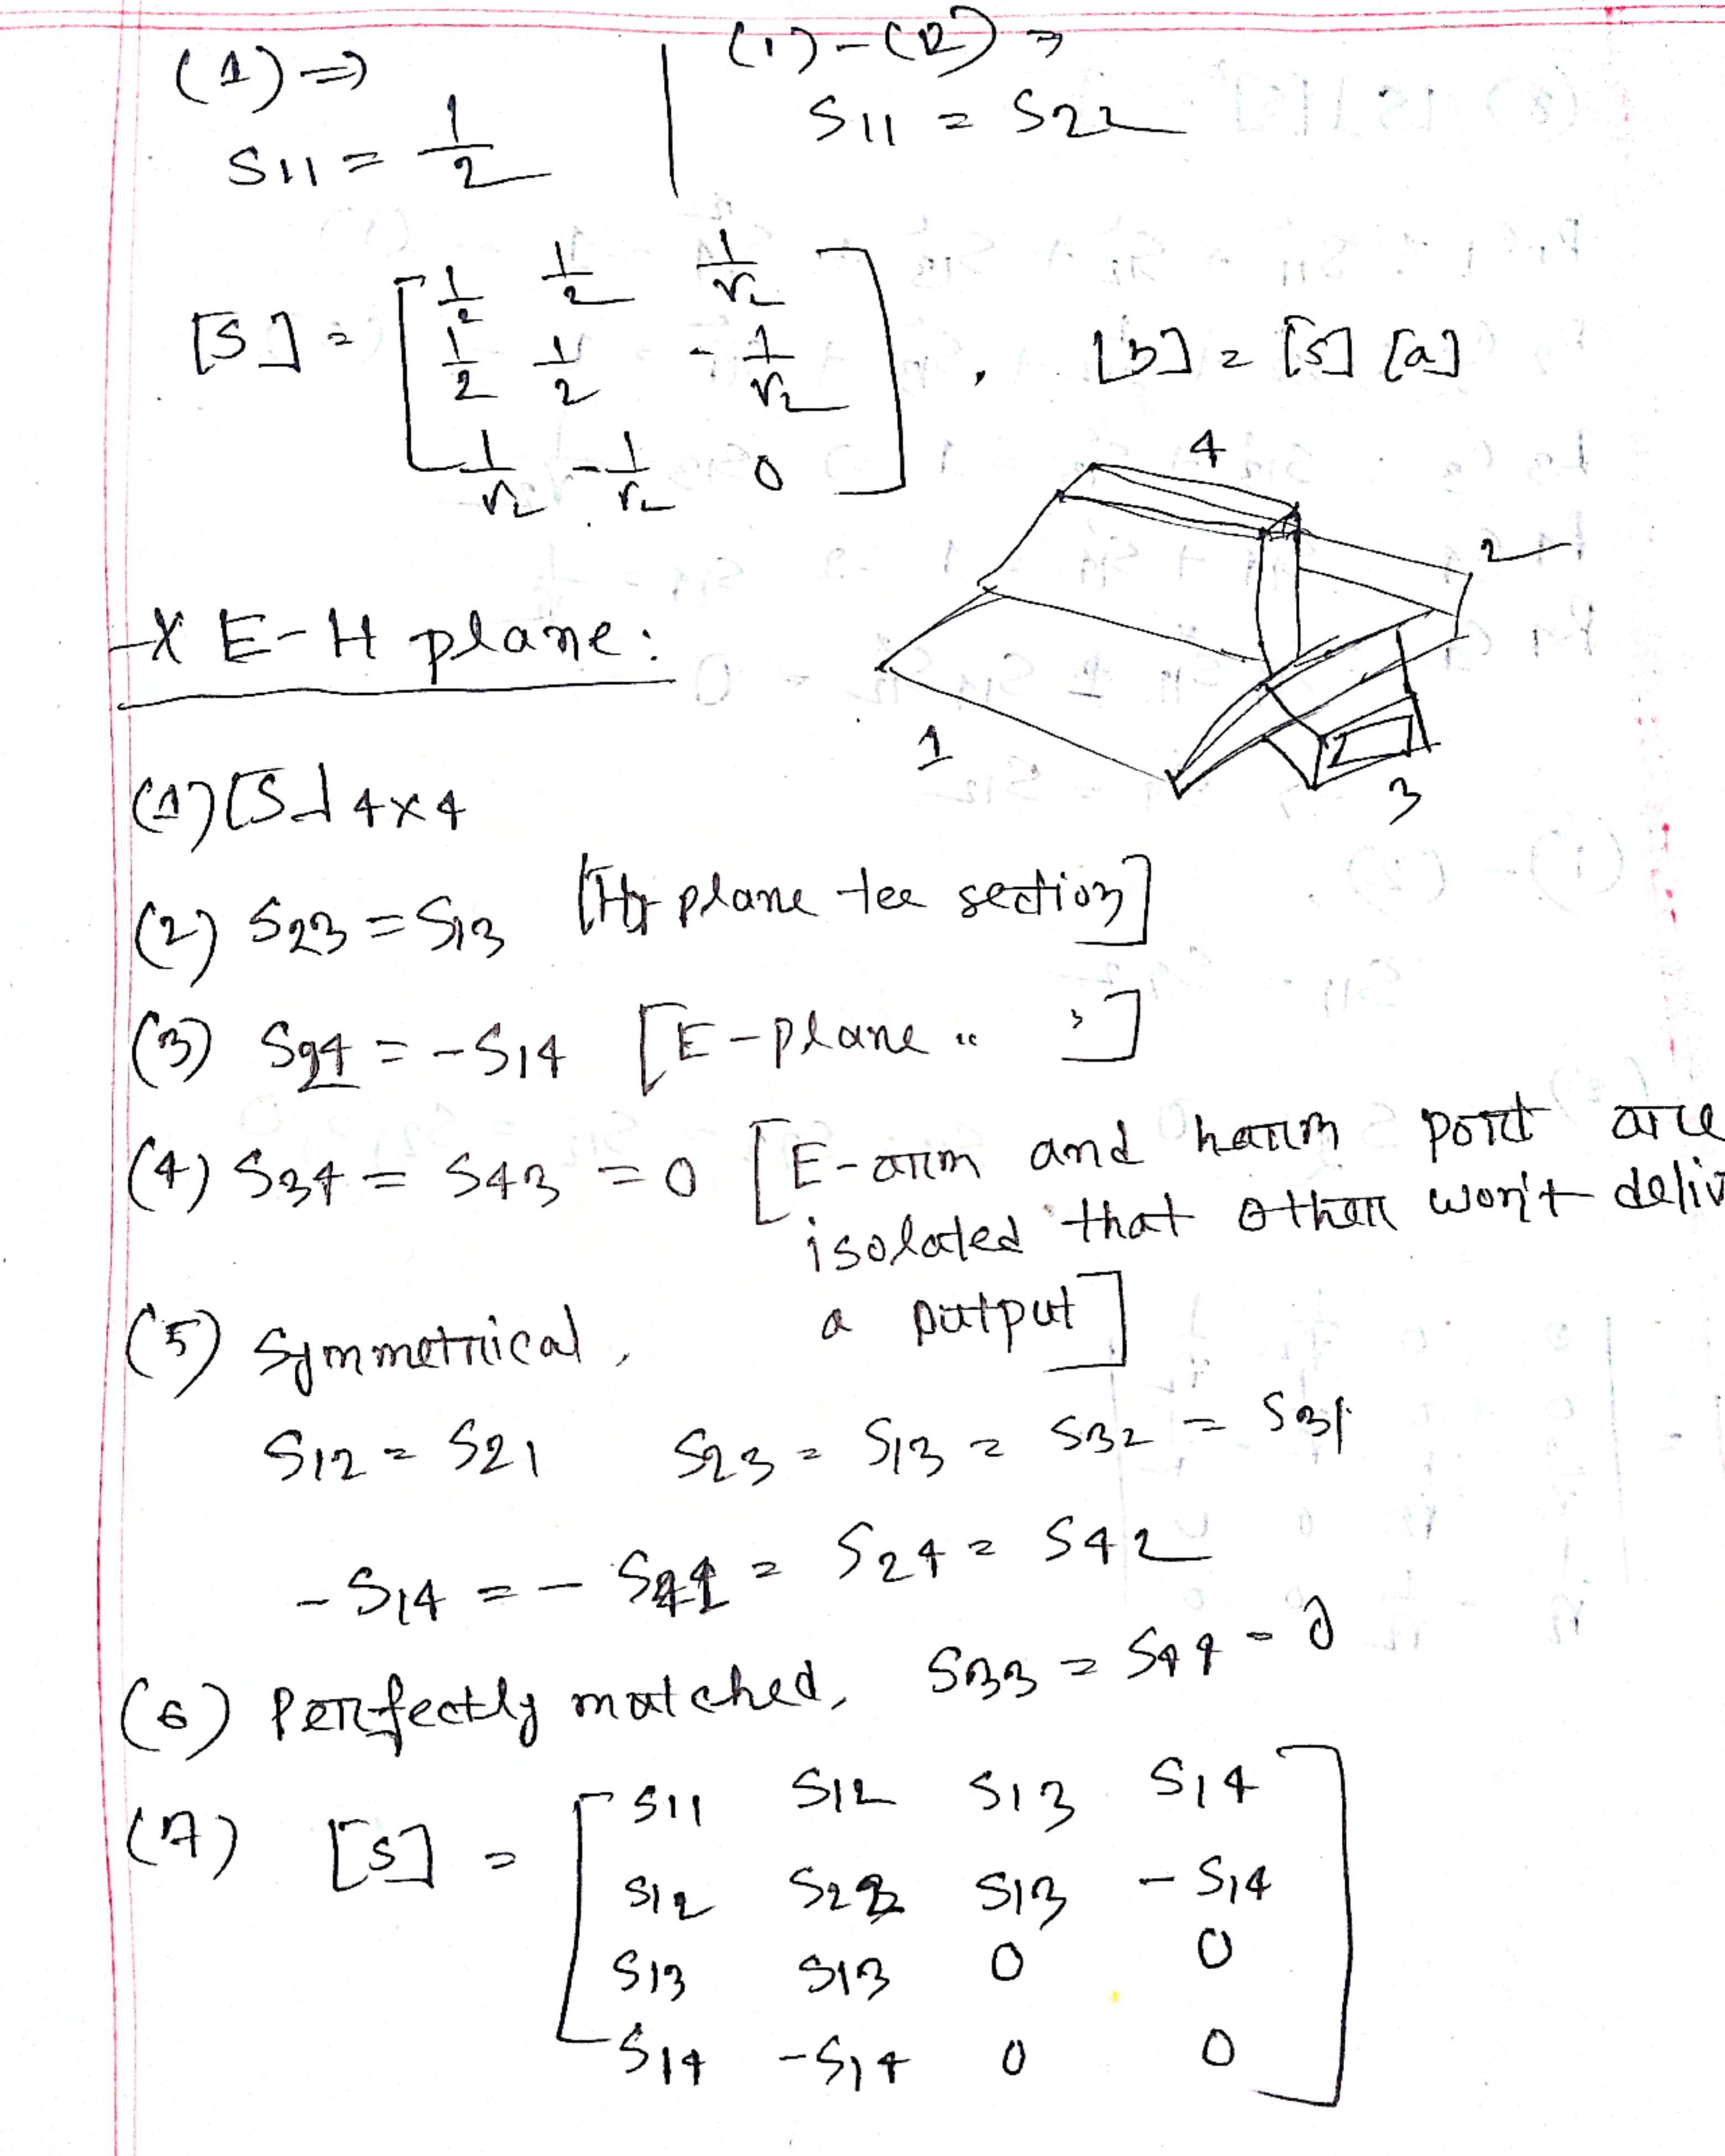 (1) ⇒
S11 = 1/2
(1) - (2) ⇒
S11 = S22
[S] = [ 1/2 1/2 1/√2
1/2 1/2 -1/√2
1/√2 -1/√2 0 ] , [b] = [s] [a]
4
2
1
3
X E-H plane:
(1) [S] 4x4
(2) S23 = S13 [H plane tee section]
(3) S24 = -S14 [E-plane " "]
(4) S34 = S43 = 0 [E-arm and harm port are
isolated that other won't deliv
a output]
(5) Symmetrical,
S12 = S21 S23 = S13 = S32 = S31
-S14 = -S41 = S24 = S42
(6) Perfectly matched, S33 = S44 = 0
(7) [S] = [ S11 S12 S13 S14
S12 S22 S13 -S14
S13 S13 0 0
S14 -S14 0 0 ]